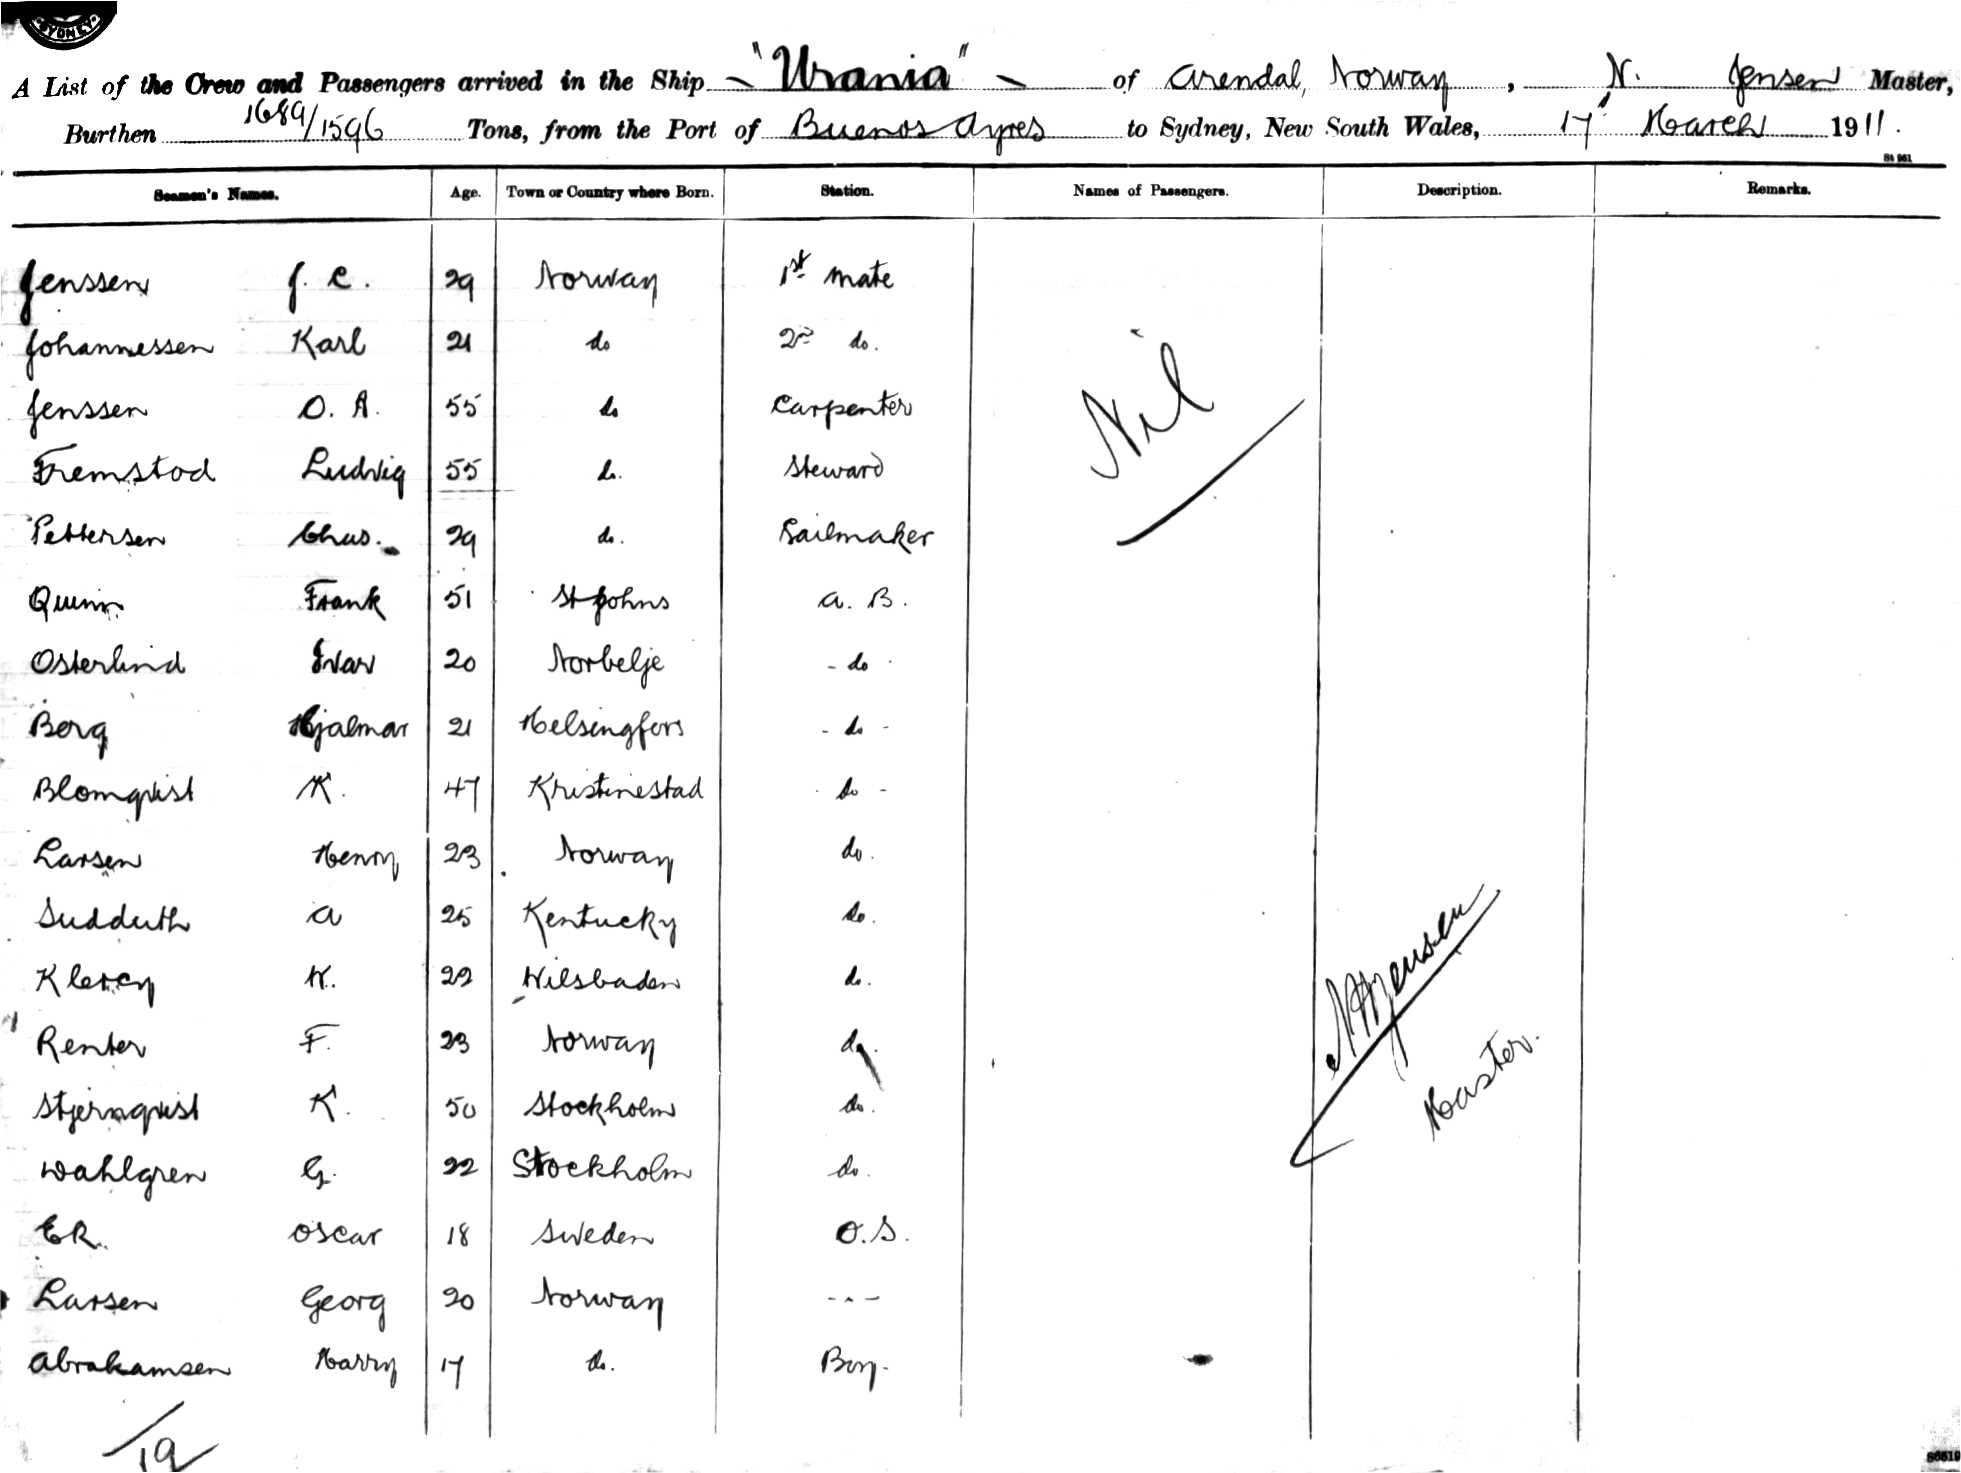 SYDNEY
A List of the Crew and Passengers arrived in the Ship "Urania" of Arendal, Norway, N. Jensen Master,
Burthen 1689/1596 Tons, from the Port of Buenos Ayres to Sydney, New South Wales, 17 March 1911.
St 961
Seamen's Names. Age. Town or Country where Born. Station. Names of Passengers. Description. Remarks.
Jenssen J. C. 29 Norway 1st mate
Johannessen Karl 21 do 2nd do.
Jenssen O. A. 55 do Carpenter
Nil
Fremstod Ludvig 55 do. Steward
Pettersen Chas. 29 do. Sailmaker
Quinn Frank 51 St Johns A. B.
Osterlind Ivar 20 Norbelje - do
Berg Hjalmar 21 Helsingfors - do -
Blomqvist K. 47 Kristinestad do -
Larsen Henry 23 Norway do.
Sudduth A 25 Kentucky do.
Klercy W. 22 Wilsbaden do.
N Jensen
Renter F. 23 Norway do.
Master.
Stjernqvist K. 50 Stockholm do.
Wahlgren G. 22 Stockholm do.
Ek. Oscar 18 Sweden O.S.
Larsen Georg 20 Norway - - -
Abrahamsen Harry 17 do. Boy.
19